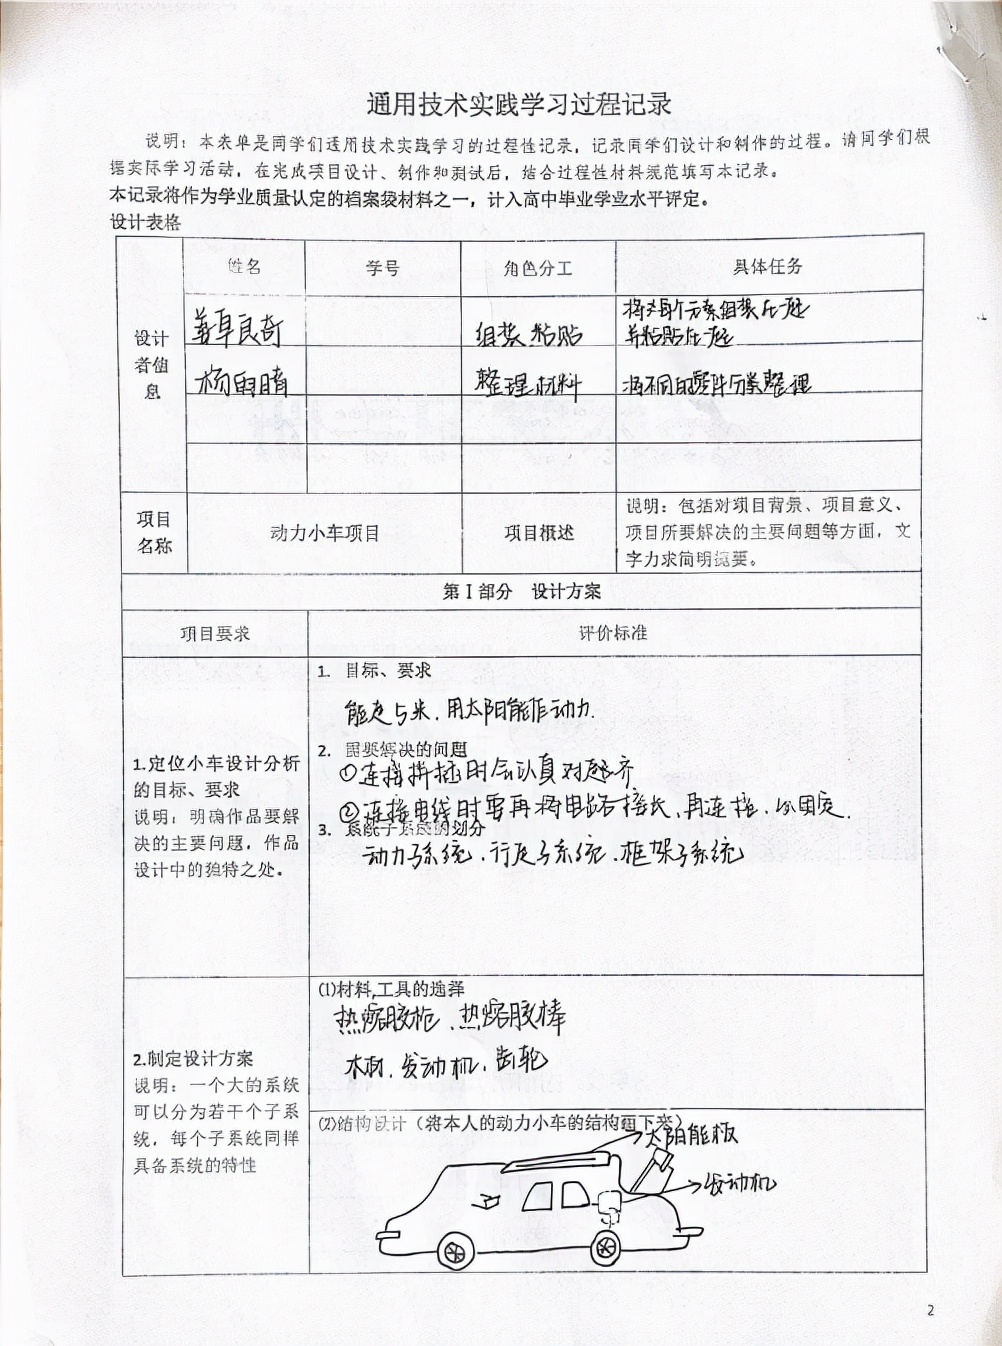 通用技术实践学习过程记录
说明：本表单是同学们通用技术实践学习的过程性记录，记录同学们设计和制作的过程。请同学们根
据实际学习活动，在完成项目设计、制作和测试后，结合过程性材料规范填写本记录。
本记录将作为学业质量认定的档案袋材料之一，计入高中毕业学业水平评定。
设计表格
姓名 学号 角色分工 具体任务
设计
者信
息
组装 粘贴
并粘贴在一起
整理材料
将不同的零件分类整理
项目
名称
动力小车项目
项目概述
说明：包括对项目背景、项目意义、
项目所要解决的主要问题等方面，文
字力求简明扼要。
第 I 部分 设计方案
项目要求 评价标准
1.定位小车设计分析
的目标、要求
说明：明确作品要解
决的主要问题，作品
设计中的独特之处。
1. 目标、要求
能走5米，用太阳能作动力.
2. 需要解决的问题
①连接拼插时会认真对整齐
②连接电线时要再将电路接长，再连接，以固定.
3. 系统子系统的划分
动力子系统、行走子系统、框架子系统
2.制定设计方案
说明：一个大的系统
可以分为若干个子系
统，每个子系统同样
具备系统的特性
(1)材料,工具的选择
热熔胶枪、热熔胶棒
木材、发动机、齿轮
(2)结构设计（将本人的动力小车的结构画下来）
太阳能板
发动机
2